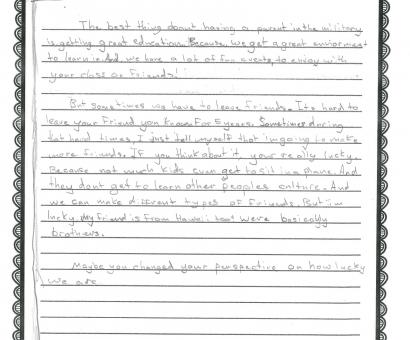 The best thing about having a parent in the military
is getting great education. Because, we get a great enviorment
to learn in. And, we have a lot of fun events to enjoy with
your class or friends!
But sometimes we have to leave friends. It's hard to
leave your friend you known for 5 years. Sometimes during
hard times, I just tell myself that im going to make
more friends. If you think about it, your really lucky.
Because not much kids even get to sit in a plane. And
they dont get to learn other peoples culture. And
we can make different types of friends. But im
lucky. My friend is from Hawaii too! We're basically
brothers.
Maybe you changed your perspective on how lucky
we are